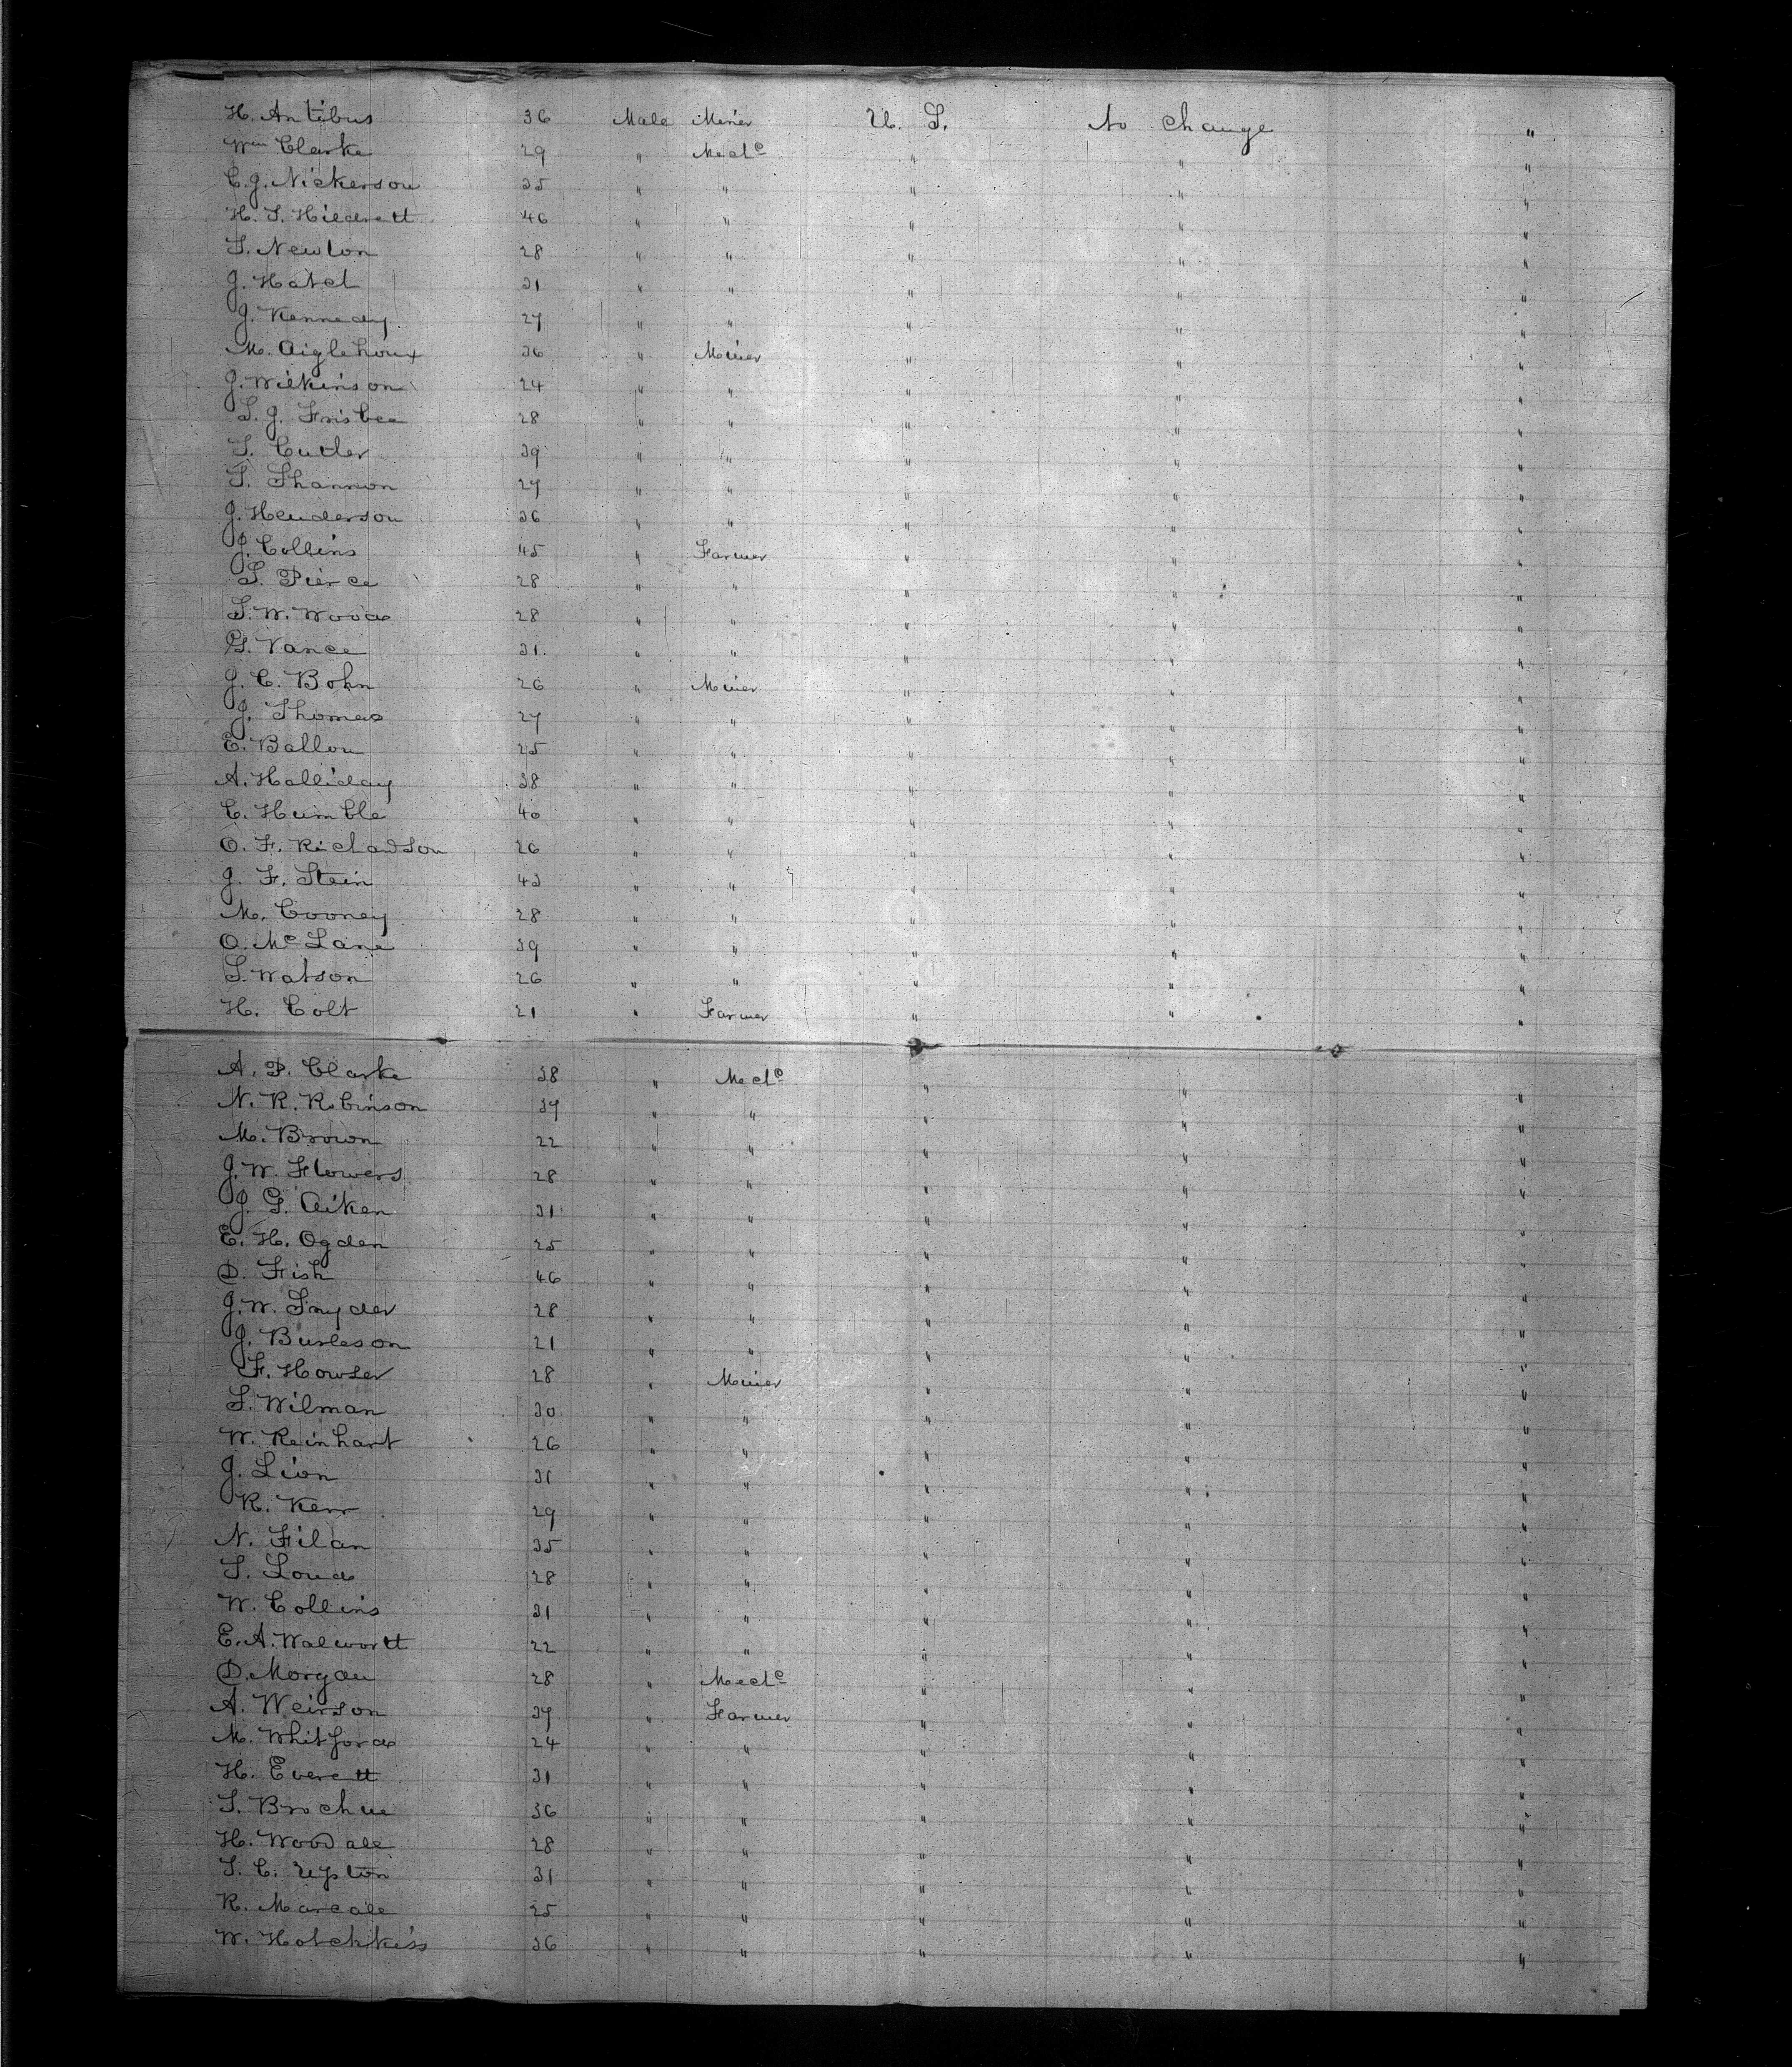 H. Antibus 36 Male Miner U. S. No change "
Wm Clarke 29 " Mechc " " "
C. J. Nickerson 35 " " " " "
H. S. Hildrett 46 " " " " "
S. Newton 28 " " " " "
J. Hatch 31 " " " " "
J. Kennedy 27 " " " " "
M. Aiglehoux 36 " Miner " " "
J. Wilkinson 24 " " " " "
S. J. Frisbee 28 " " " " "
S. Cutler 39 " " " " "
T. Shannon 27 " " " " "
J. Henderson 36 " " " " "
J. Collins 45 " Farmer " " "
S. Pierce 28 " " " " "
S. W. Wood 28 " " " " "
G. Vance 31 " " " " "
J. C. Bohn 26 " Miner " " "
J. Thomas 27 " " " " "
E. Ballou 25 " " " " "
A. Halliday 38 " " " " "
C. Humble 40 " " " " "
O. F. Richardson 26 " " " " "
J. F. Stein 43 " " " " "
M. Cooney 28 " " " " "
O. Mc Lane 39 " " " " "
S. Watson 26 " " " " "
H. Colt 21 " Farmer " " "
A. P. Clarke 38 " Mechc " " "
N. R. Robinson 37 " " " " "
M. Brown 22 " " " " "
J. W. Flowers 28 " " " " "
J. G. Aiken 31 " " " " "
E. H. Ogden 25 " " " " "
D. Fish 46 " " " " "
J. W. Snyder 28 " " " " "
J. Burleson 21 " " " " "
F. Howser 28 " Miner " " "
S. Wilman 30 " " " " "
W. Reinhart 26 " " " " "
J. Lion 31 " " " " "
R. Kerr 29 " " " " "
N. Filan 35 " " " " "
S. Loud 28 " " " " "
W. Collins 31 " " " " "
E. A. Walworth 22 " " " " "
D. Morgan 28 " Mechc " " "
A. Weirson 37 " Farmer " " "
M. Whitford 24 " " " " "
H. Everett 31 " " " " "
S. Brochue 36 " " " " "
H. Woodall 28 " " " " "
S. C. Upton 31 " " " " "
R. Marcall 25 " " " " "
W. Hotchkiss 36 " " " " "